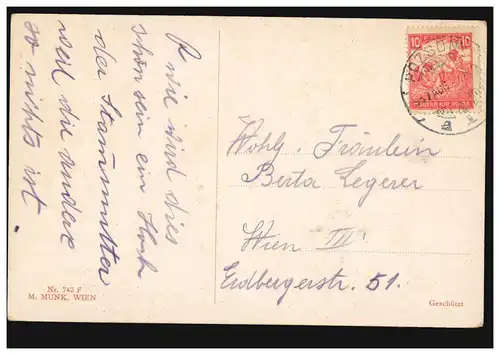 O wie wird dies
schön sein ein Hoch
der Stammutter
weil die andere
so nichts ist.
Nr. 742 F
M. MUNK, WIEN
10
10
POZSONY
MAGYAR KIR. POSTA
Wohlg. Fräulein
Berta Legerer
Wien III
Erdbergerstr. 51.
Geschützt